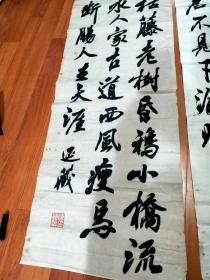 枯藤老樹昏鴉小橋流
水人家古道西風瘦馬
斷腸人在天涯
君不見